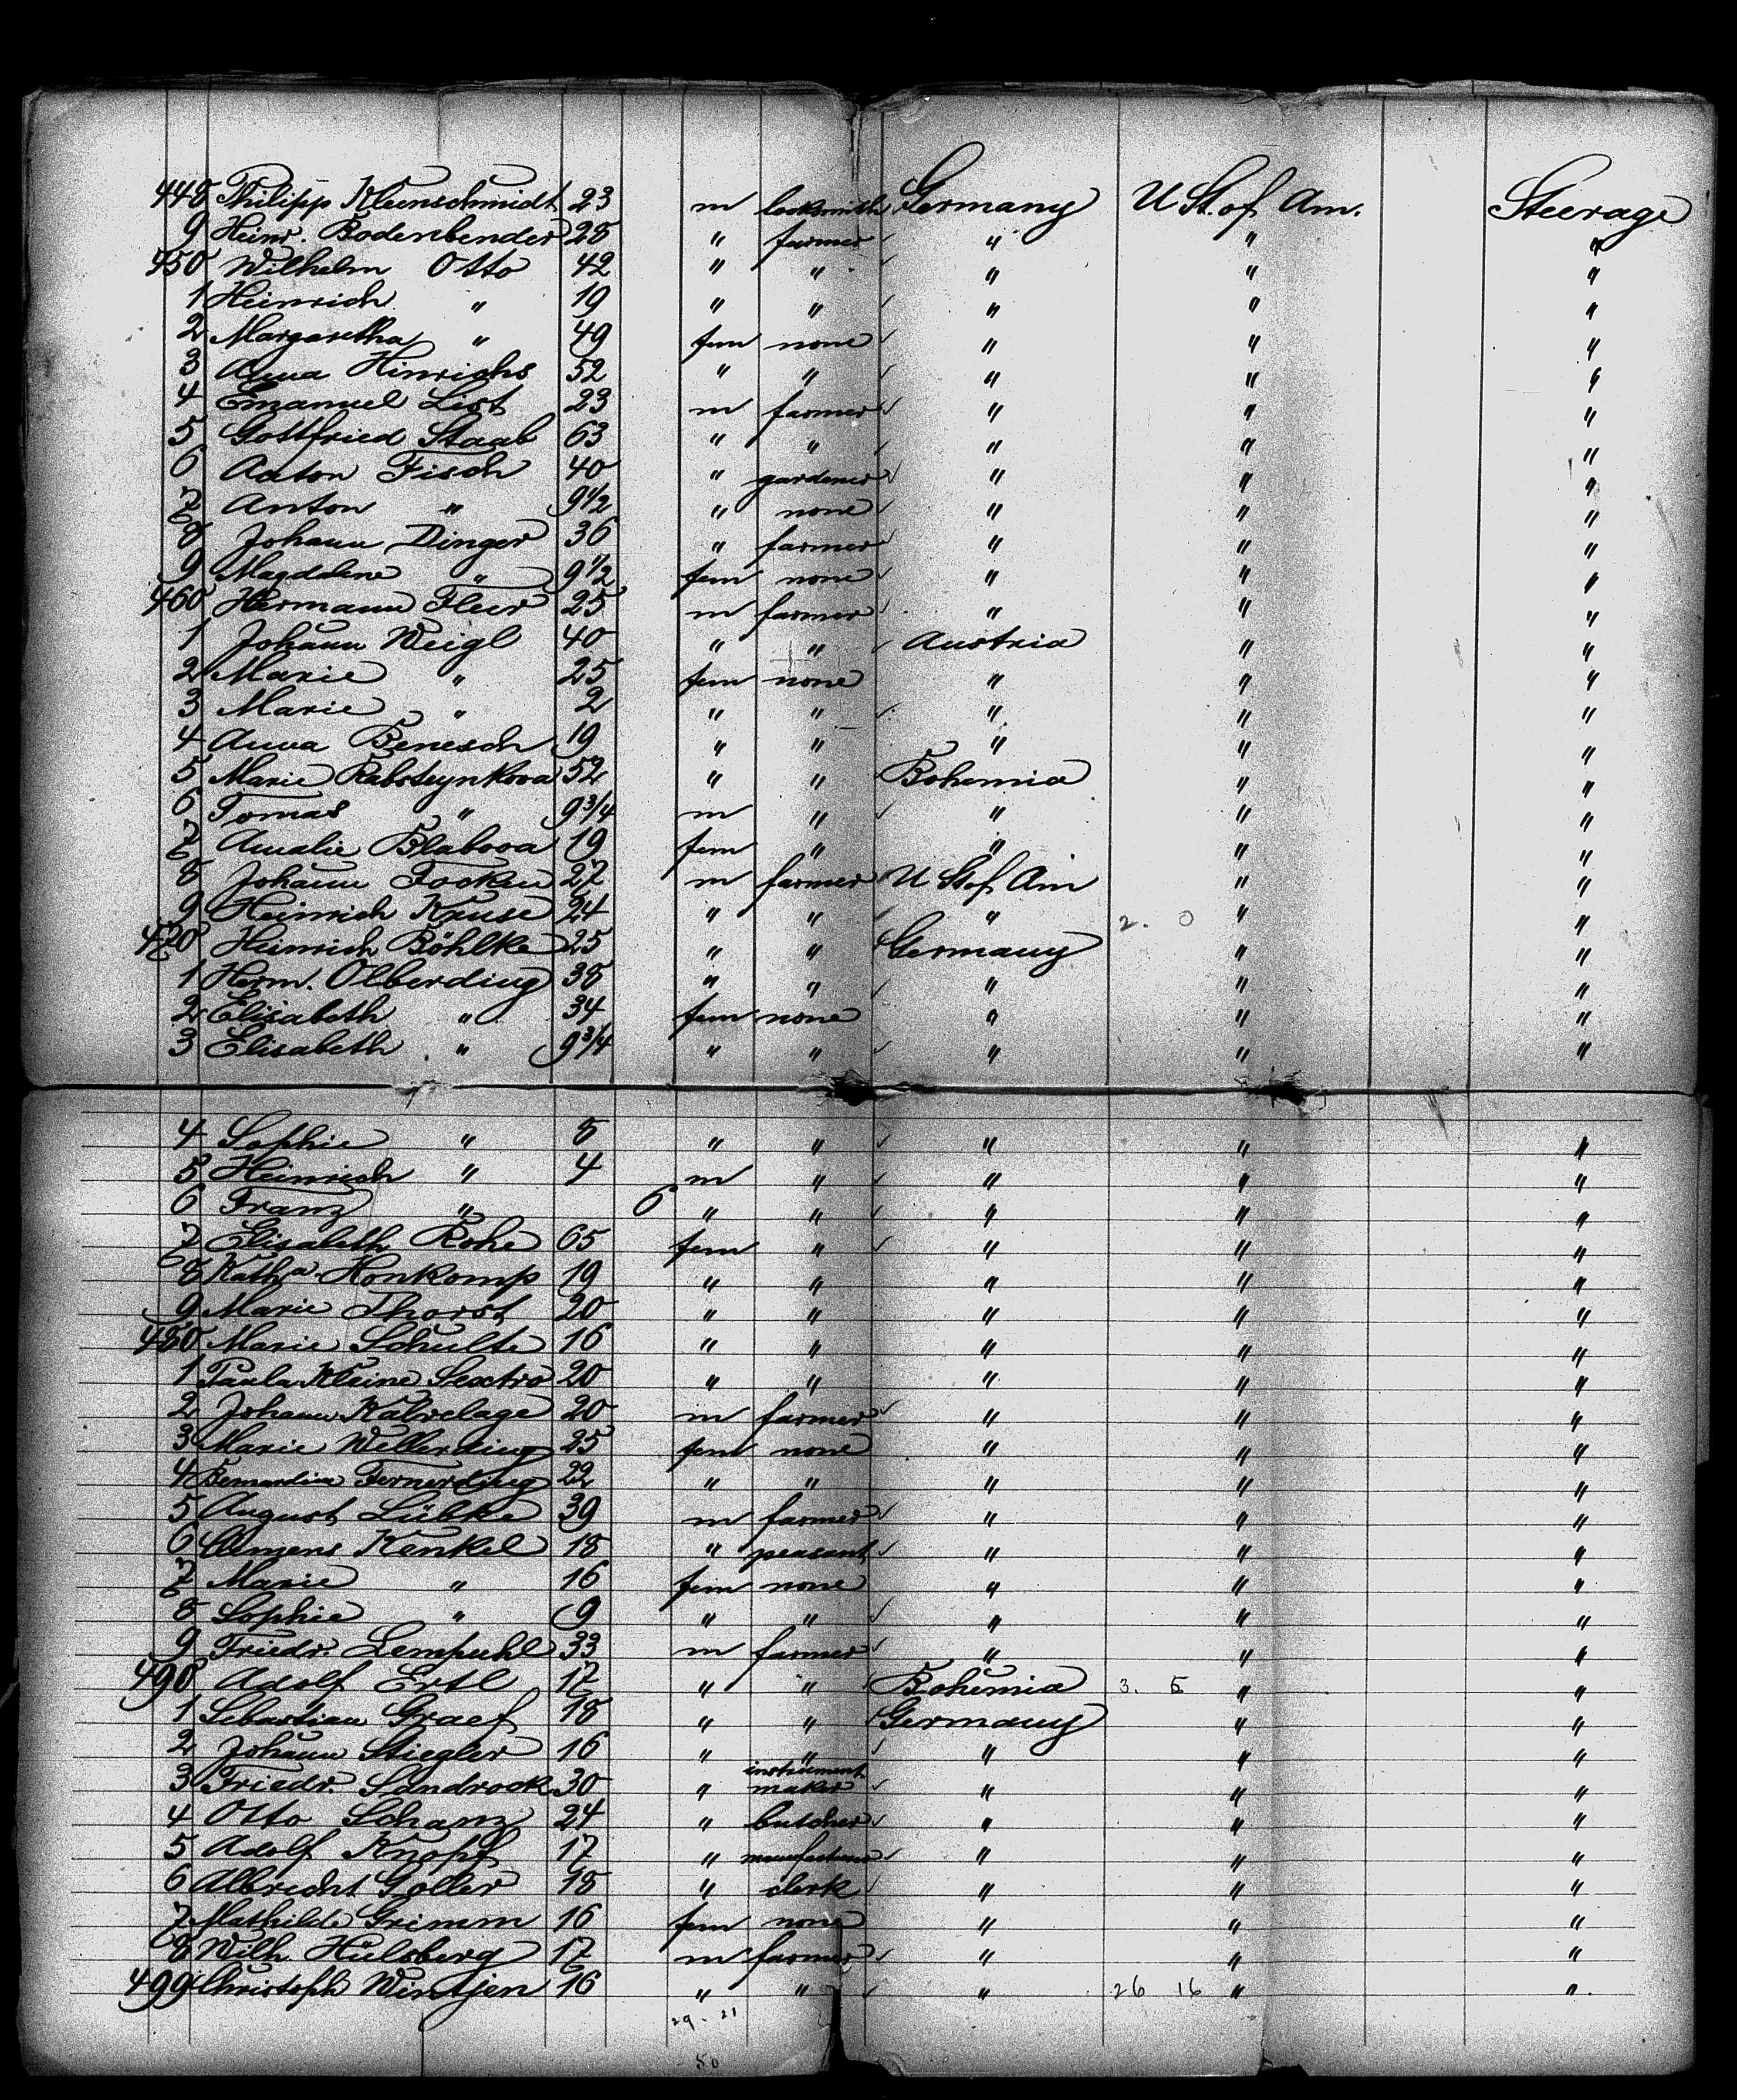 448 Philipp Kleinschmidt 23 m locksmith Germany U St. of Am. Steerage
9 Heinr. Bodenbender 28 " farmer " " "
450 Wilhelm Otto 42 " " " " "
1 Heinrich " 19 " " " " "
2 Margaretha " 49 fem none " " "
3 Anna Hinrichs 52 " " " " "
4 Emanuel List 23 m farmer " " "
5 Gottfried Staab 63 " " " " "
6 Anton Fisch 40 " gardener " " "
7 Anton " 9 1/2 " none " " "
8 Johann Dinger 36 " farmer " " "
9 Magdalene " 9 1/2 fem none " " "
460 Hermann Fleer 25 m farmer " " "
1 Johann Weigl 40 " " Austria " "
2 Marie " 25 fem none " " "
3 Marie " 2 " " " " "
4 Anna Benesch 19 " " " " "
5 Marie Rabsteynkova 52 " " Bohemia " "
6 Tomas " 9 3/4 m " " " "
7 Amalie Blabova 19 fem " " " "
8 Johann Focken 27 m farmer U St of Am " "
9 Heinrich Kruse 24 " " " 2. 0 " "
470 Heinrich Böhlke 25 " " Germany " "
1 Herm. Olberding 38 " " " " "
2 Elisabeth " 34 fem none " " "
3 Elisabeth " 9 3/4 " " " " "
4 Sophie " 8 " " " " "
5 Heinrich " 4 m " " " "
6 Franz " 6 " " " " "
7 Elisabeth Rohe 65 fem " " " "
8 Katha Honkomp 19 " " " " "
9 Marie Thorst 20 " " " " "
480 Marie Schulte 16 " " " " "
1 Paula Kleine Sextro 20 " " " " "
2 Johann Kalvelage 20 m farmer " " "
3 Marie Wellerding 25 fem none " " "
4 Bernardine Fernerding 22 " " " " "
5 August Lübke 39 m farmer " " "
6 Clemens Kenkel 18 " peasant " " "
7 Marie " 16 fem none " " "
8 Sophie " 9 " " " " "
9 Friedr. Lempuhl 33 m farmer " " "
490 Adolf Ertl 17 " " Bohemia 3. 5 " "
1 Sebastian Graef 18 " " Germany " "
2 Johann Stiegler 16 " " " " "
3 Friedr. Sandrock 30 " instrument maker " " "
4 Otto Schanz 24 " butcher " " "
5 Adolf Knopf 17 " " " "
6 Albrecht Goller 18 " clerk " " "
7 Mathilde Grimm 16 fem none " " "
8 Wilh. Hülsberg 17 m farmer " " "
499 Christoph Wintjen 16 " " " 26 16 " "
29 - 21
50